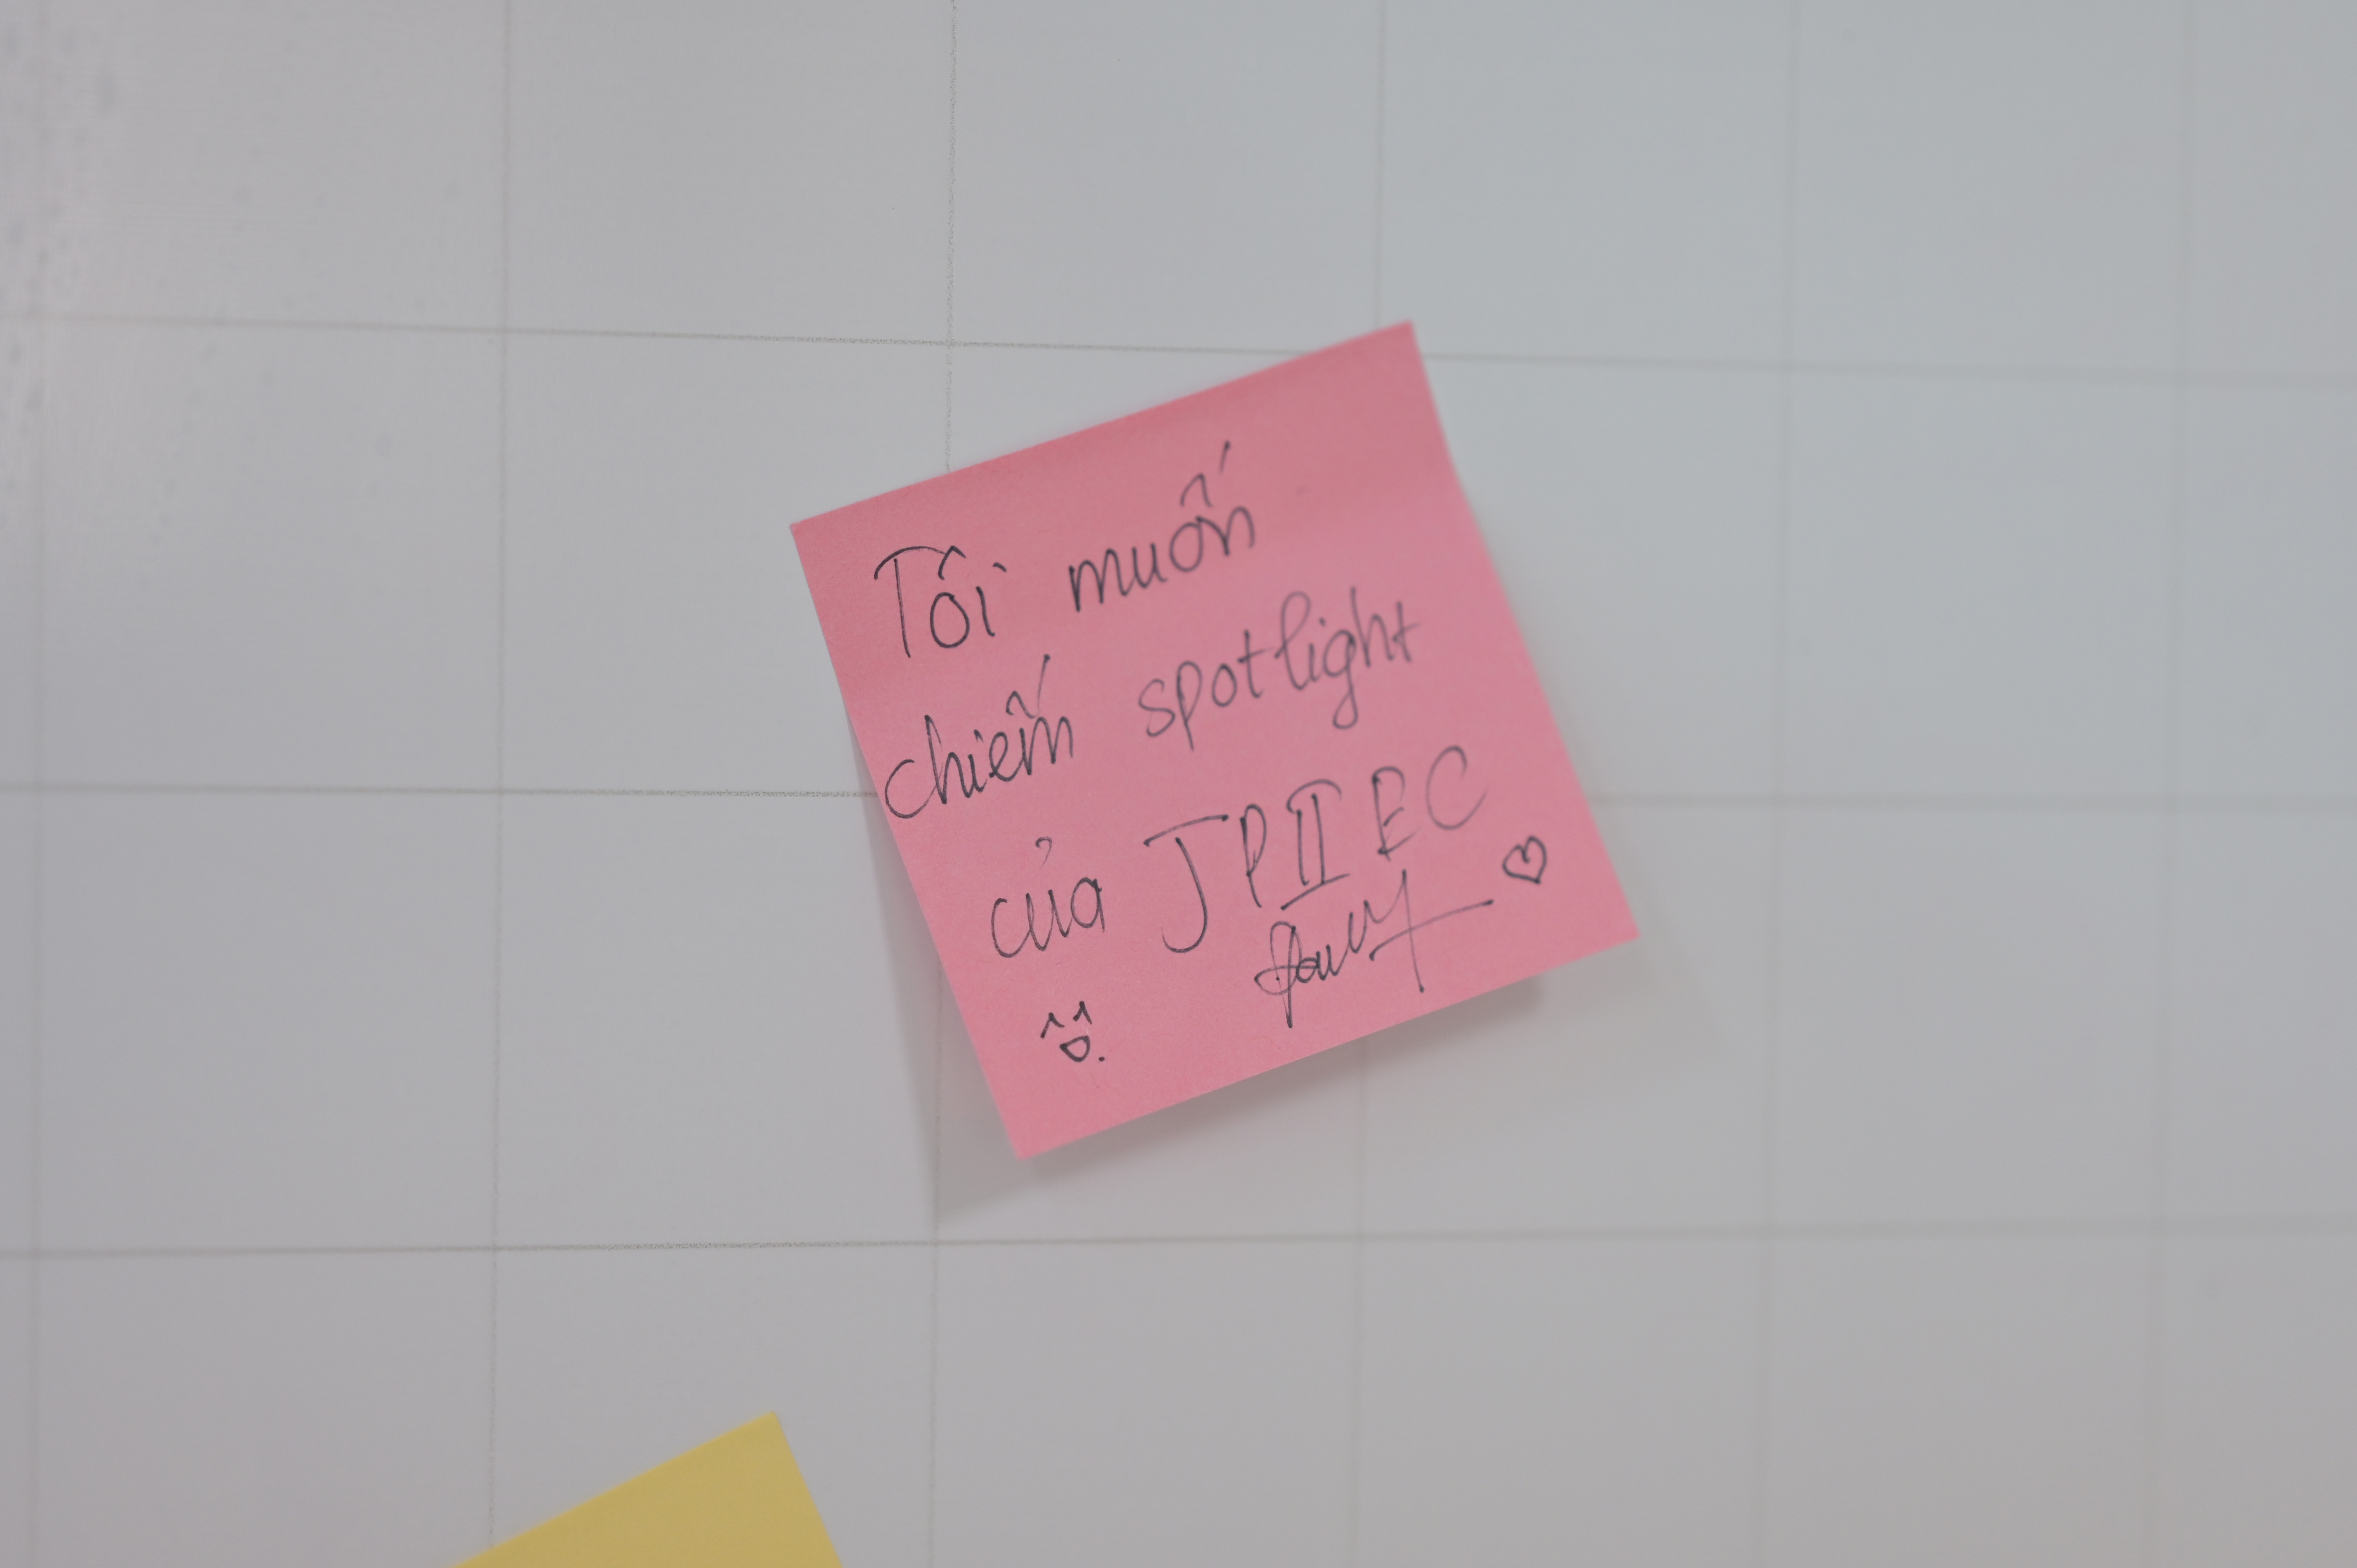 Tôi muốn
chiếm spotlight
của JPII EC